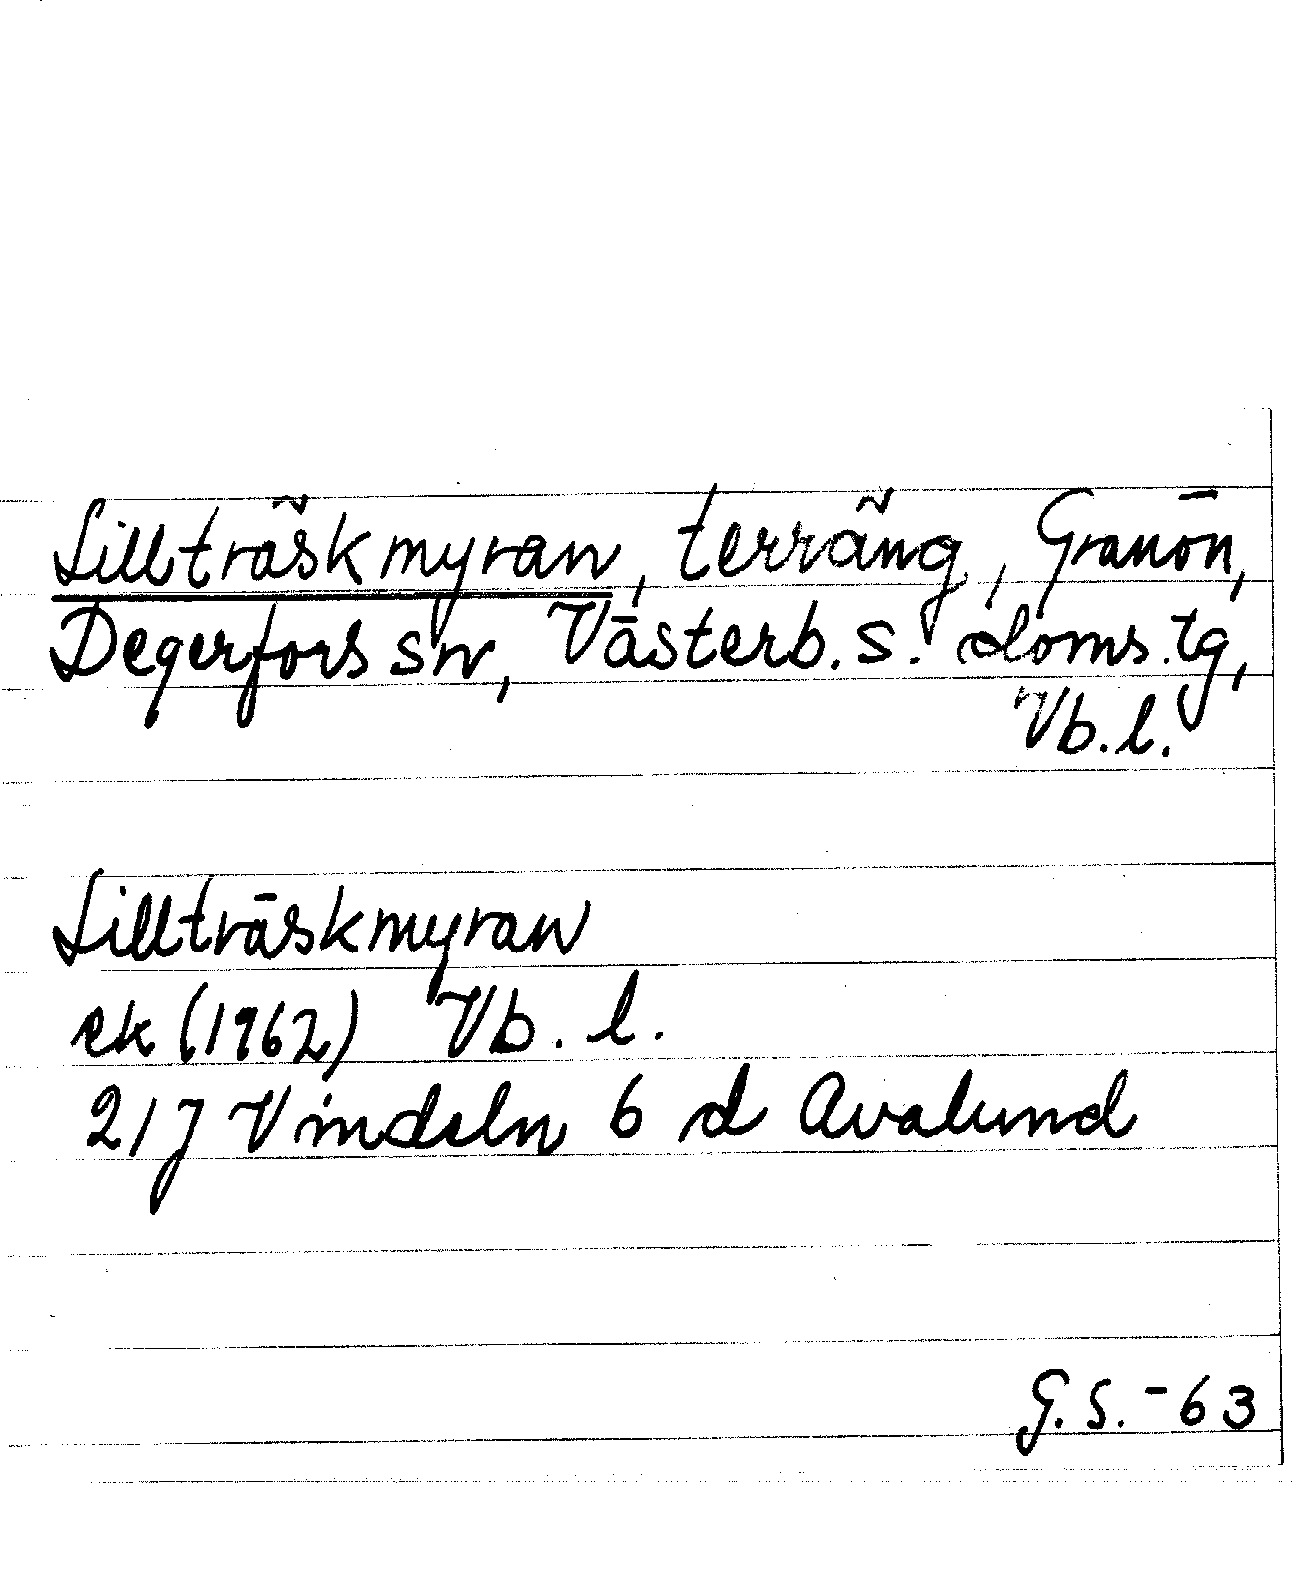 Lillträskmyran, terräng, Granön,
Degerfors sn, Västerb. s. doms.tg,
Vb. l.
Lillträskmyran
ek (1962) Vb. l.
21J Vindeln 6 d Avalund
G. S. -63